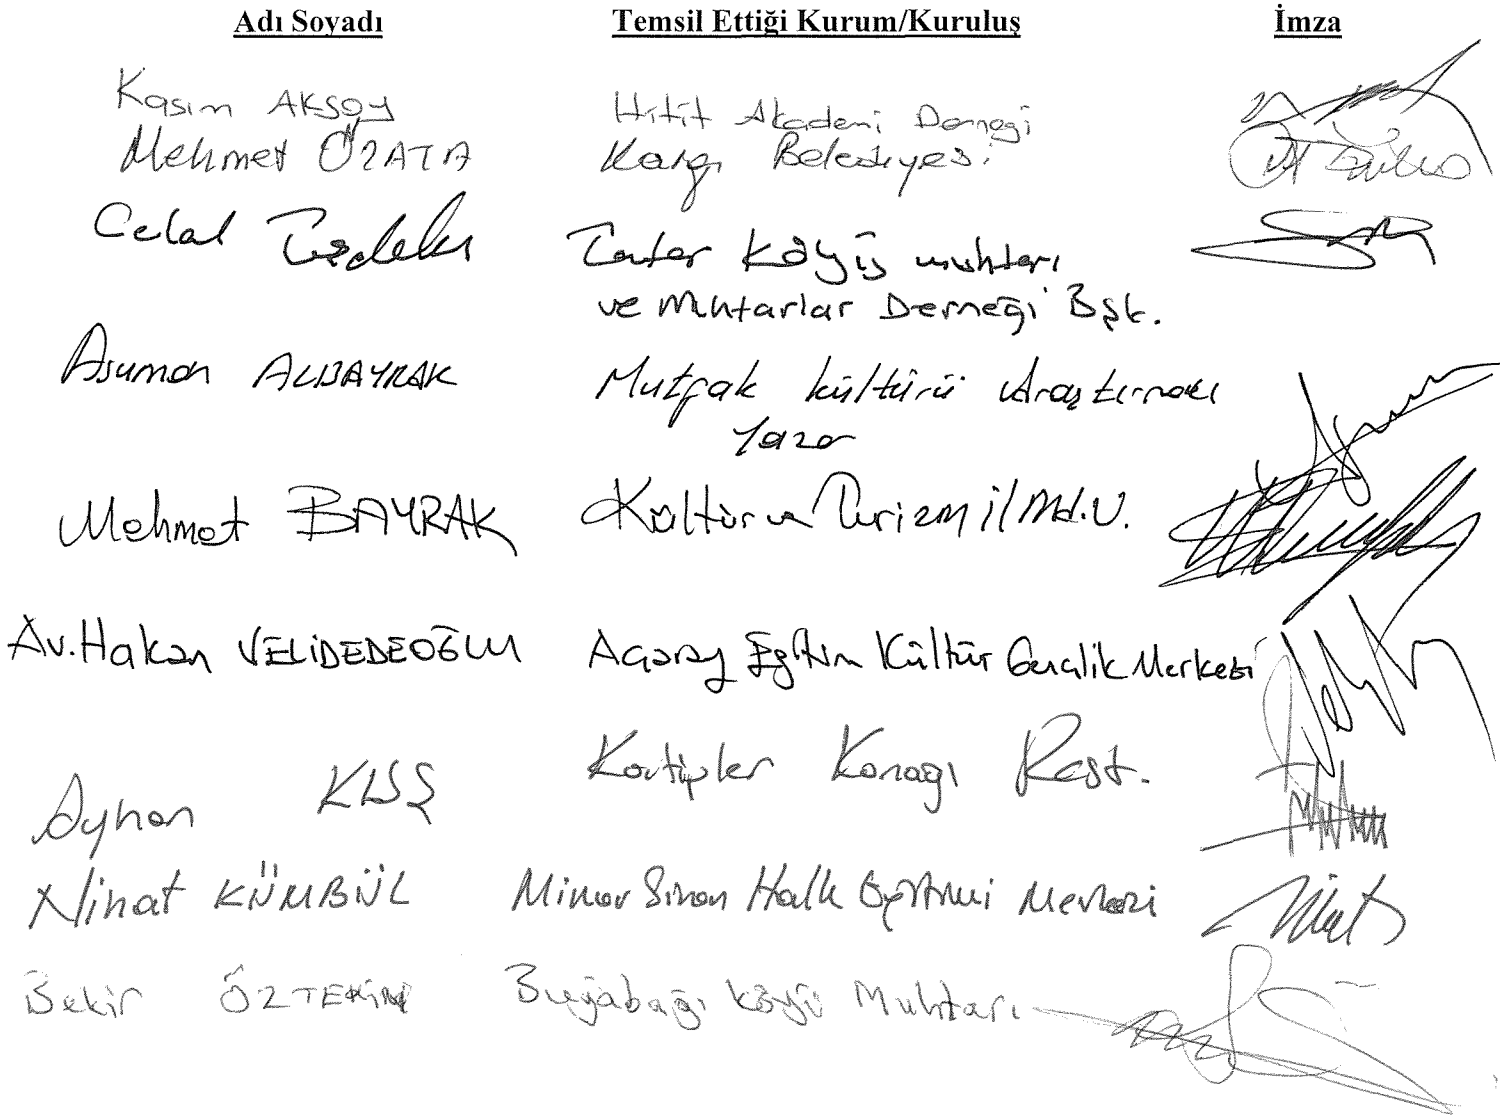 Adı Soyadı Temsil Ettiği Kurum/Kuruluş İmza
Kasım AKSOY Hitit Akademi Derneği
Mehmet ÖZATA Kargı Belediyesi
Celal Köyü muhtarı
ve Muhtarlar Derneği Bşk.
Asuman ALBAYRAK Mutfak Kültürü Araştırmacı
Yazar
Mehmet BAYRAK Kültür ve Turizm il Md.V.
Av. Hakan VELİDEDEOĞLU Acaray Eğitim Kültür Gençlik Merkezi
Katipler Konağı Rest.
Ayhan KUŞ
Nihat KÜMBÜL Mimar Sinan Halk Eğitimi Merkezi
Bekir ÖZTEKİN Buğabağı Köyü Muhtarı